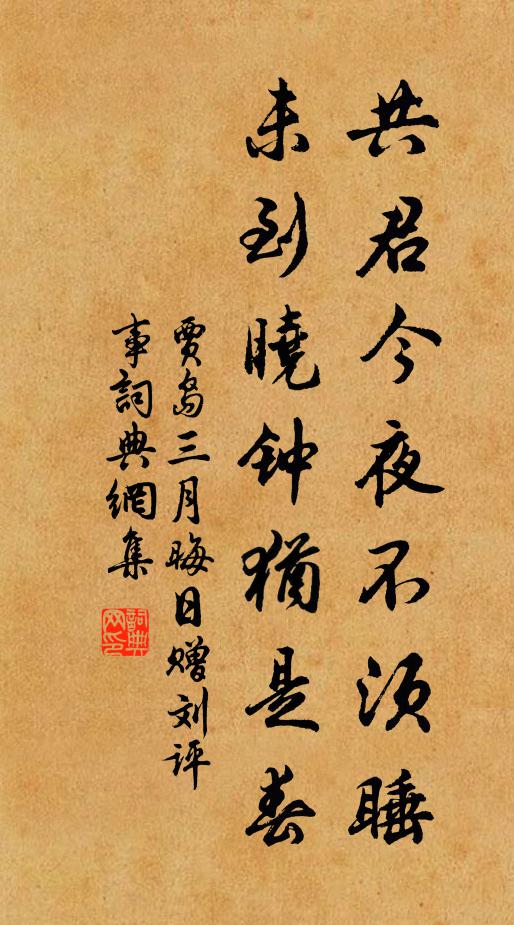 共君今夜不须睡
未到曉钟猶是春
贾島三月晦日赠刘评
事詞典網集
詞典
网印